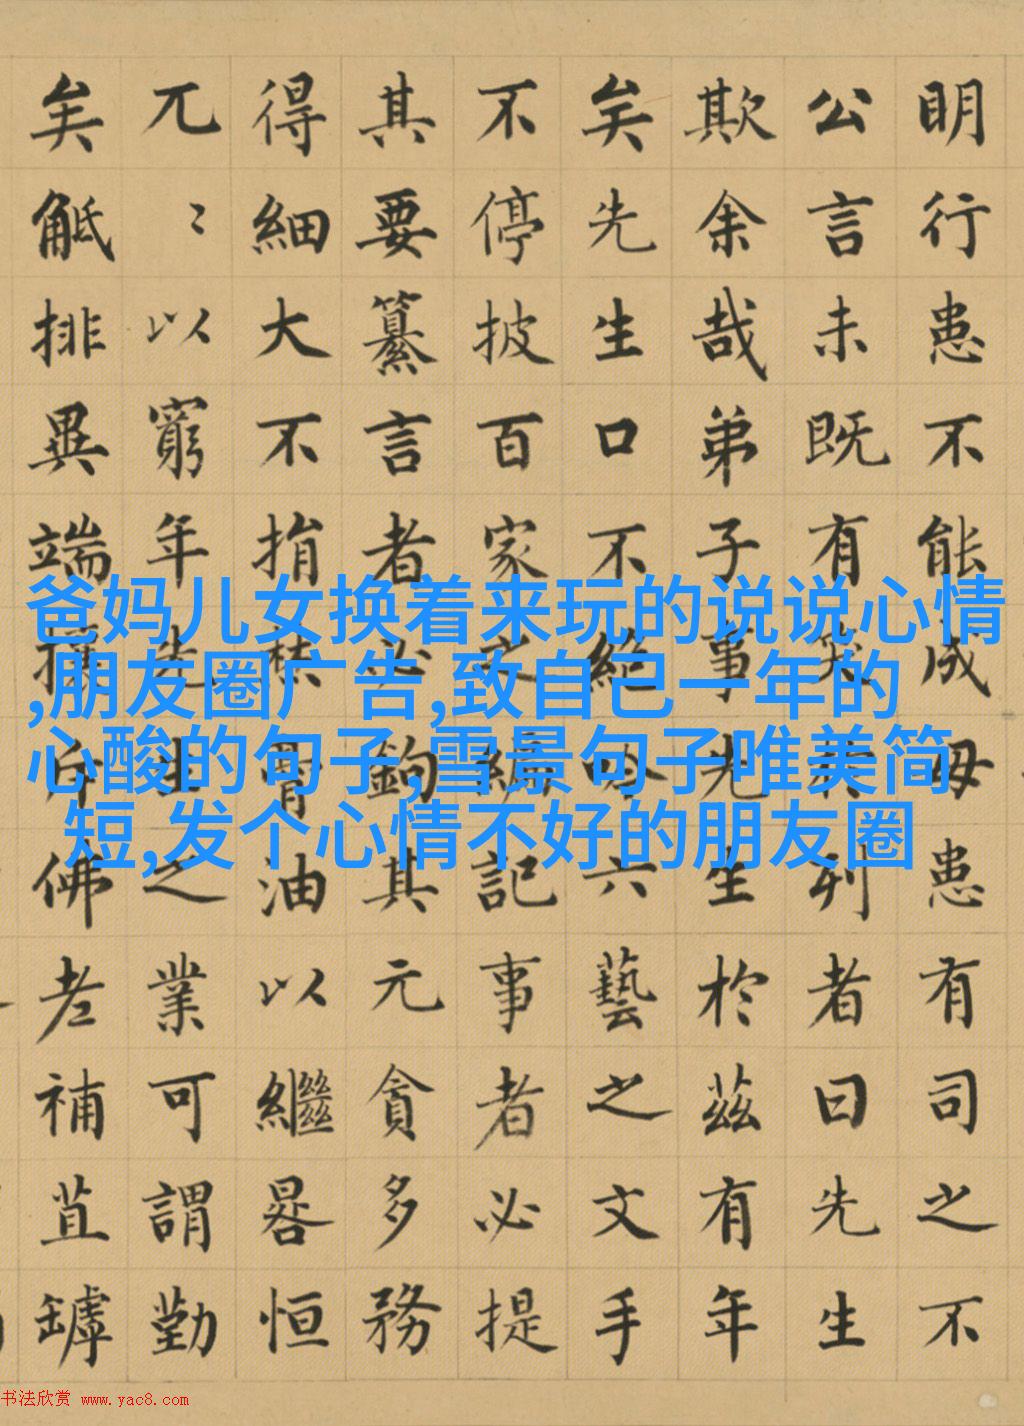 明行患不能成毋患有司之不
公言未既有笑於列者曰先生
欺余哉弟子事先生於茲有年
矣先生口不絕吟六藝之文手
不停披百家之編記事者必提
其要纂言者必鉤其元貪多務
得細大不捐焚膏油以繼晷恒
兀〻以窮年先生之業可謂勤
矣觝排異端攘斥佛老補苴罅
爸妈儿女换着来玩的说说心情
,朋友圈广告,致自己一年的
心酸的句子,雪景句子唯美简
短,发个心情不好的朋友圈
书法欣赏 www.yac8.com